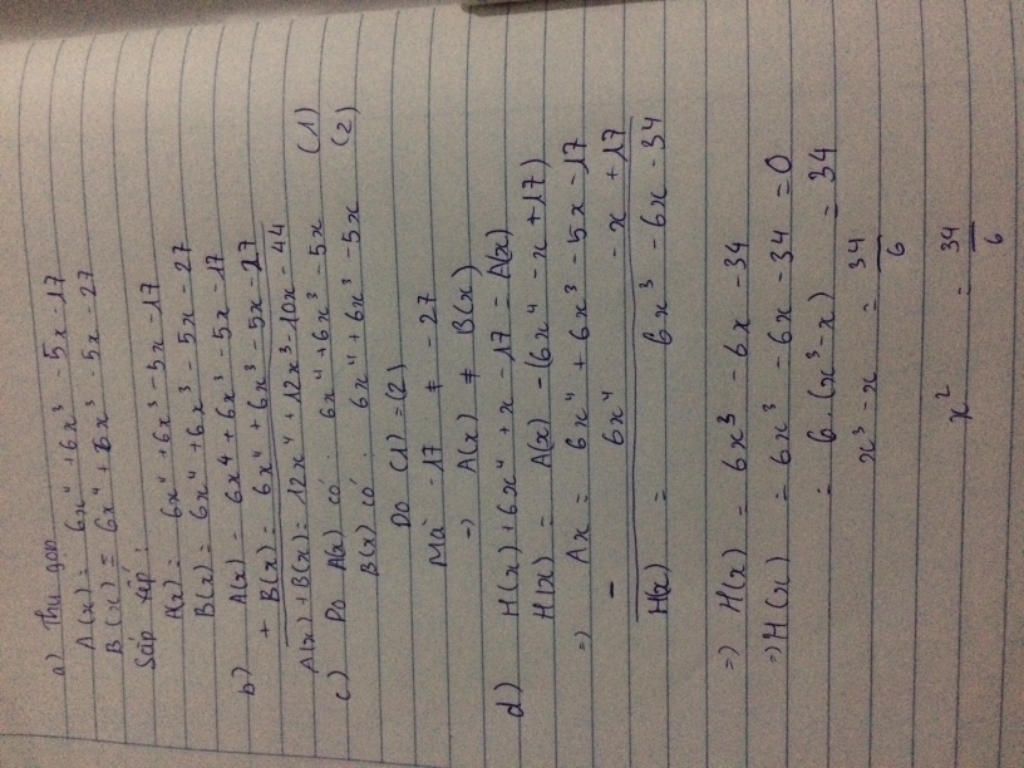 a) Thu gọn
A(x) = 6x⁴ + 6x³ - 5x - 17
B(x) = 6x⁴ + 6x³ - 5x - 27
Sắp xếp :
A(x) = 6x⁴ + 6x³ - 5x - 17
B(x) = 6x⁴ + 6x³ - 5x - 27
b) A(x) = 6x4 + 6x³ - 5x - 17
+ B(x) = 6x⁴ + 6x³ - 5x - 27
A(x) + B(x) = 12x⁴ + 12x³ - 10x - 44
c) Do A(x) có : 6x⁴ + 6x³ - 5x (1)
B(x) có : 6x⁴ + 6x³ - 5x (2)
Do (1) = (2)
Mà -17 ≠ -27
=> A(x) ≠ B(x)
d) H(x) + 6x⁴ + x - 17 = A(x)
H(x) = A(x) - (6x⁴ - x + 17)
=> Ax = 6x⁴ + 6x³ - 5x - 17
- 6x⁴ - x + 17
H(x) = 6x³ - 6x - 34
=> H(x) = 6x³ - 6x - 34
=> H(x) = 6x³ - 6x - 34 = 0
= 6 . (x³ - x) = 34
x³ - x = 34/6
x² = 34/6